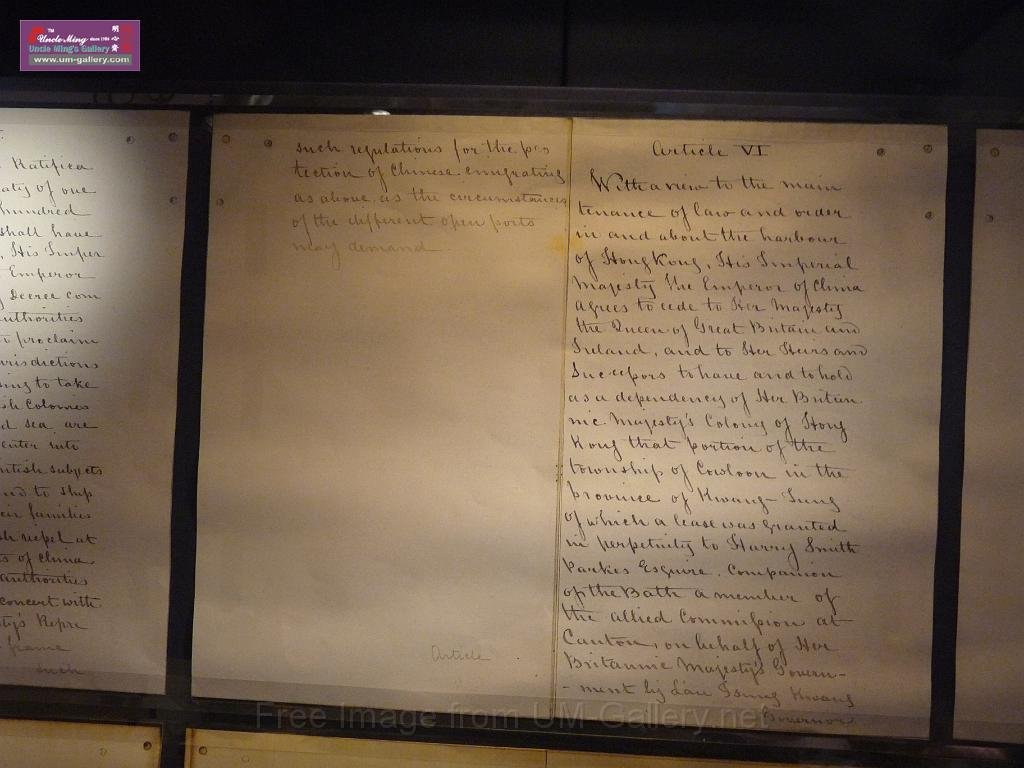 Uncle Ming since 1986
Uncle Ming's Gallery
www.um-gallery.com
Ratifica
of one
hundred
shall have
His Imper
Emperor
Decree com
authorities
to proclaim
jurisdictions
to take
Colonies
sea, are
enter into
British subjects
and to ship
their families
at
of China
authorities
concert with
Repre
frame
such
such regulations for the pro
tection of Chinese emigrating
as above as the circumstances
of the different open ports
may demand
Article
Article VI
With a view to the main
tenance of law and order
in and about the harbour
of Hong Kong, His Imperial
Majesty The Emperor of China
agrees to cede to Her Majesty
the Queen of Great Britain and
Ireland, and to Her Heirs and
Successors to have and to hold
as a dependency of Her Britan
nic Majesty's Colony of Hong
Kong that portion of the
township of Cowloon in the
province of Kwang-Tung
of which a lease was granted
in perpetuity to Harry Smith
Parkes Esquire, Companion
of the Bath a member of
the allied Commission at
Canton, on behalf of Her
Britannic Majesty's Govern-
-ment by Lau Tsung Kwang
Governor
Free Image from UM Gallery.net